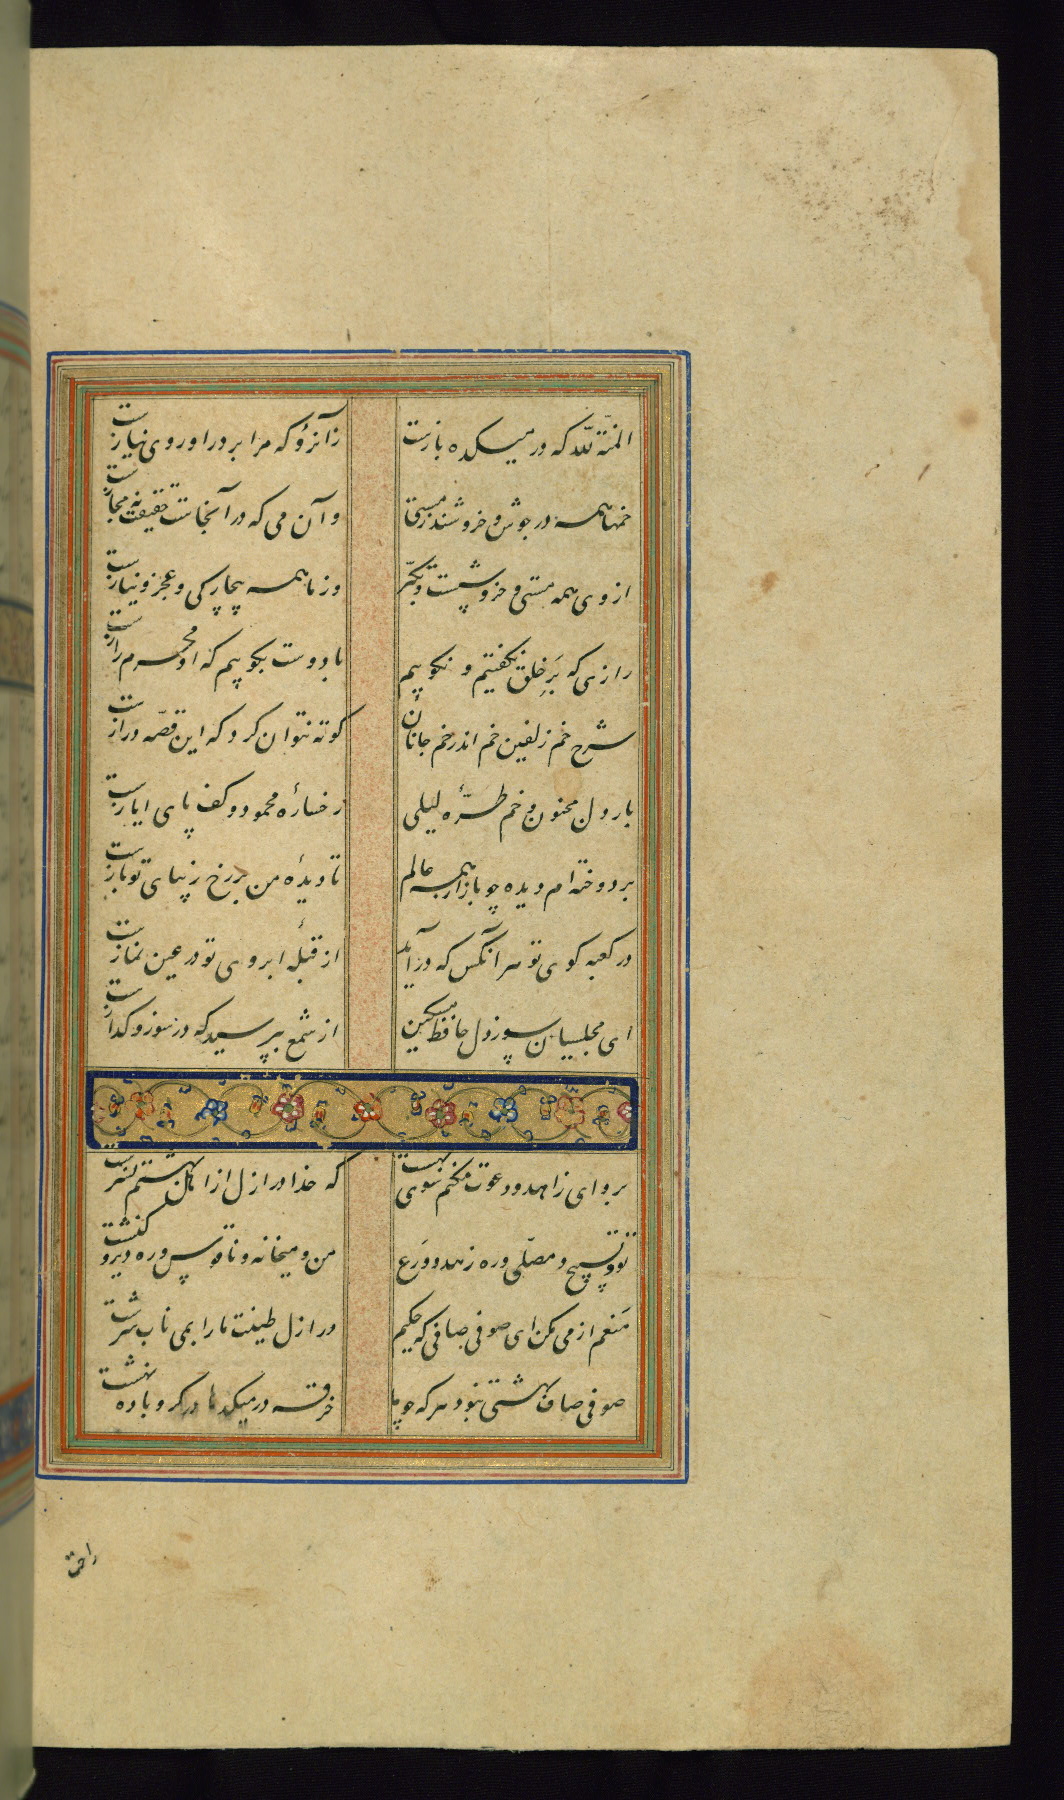 المنّة للّه که در میکده بازست
زآنرو که مرا بر در او روی نیازست
خمها همه در جوش و خروشند ز مستی
و آن می که در آنجاست حقیقت نه مجازست
از وی همه مستی و خروشست و تکبّر
وز ما همه بیچارگی و عجز و نیازست
رازی که بَرِ خلق نگفتیم و نگوییم
با دوست بگوییم که او محرم رازست
شرح خم زلفین خم اندر خم جانان
کوته نتوان کرد که این قصّه درازست
بار دل مجنون و خم طرّهٔ لیلی
رخسارهٔ محمود و کف پای ایازست
بر دوخته‌ام دیده چو باز از همه عالم
تا دیدهٔ من بر رخ زیبای تو بازست
در کعبه کوی تو هر آنکس که درآید
از قبلهٔ ابروی تو در عین نمازست
ای مجلسیان سوز دل حافظ مسکین
از شمع بپرسید که در سوز و گدازست
برو ای زاهد و دعوت مکنم سوی بهشت
که خدا در ازل از اهل بهشتم نسرشت
تو و تسبیح و مصلّی و ره زهد و وَرَع
من و میخانه و ناقوس و ره دیر و کنشت
مَنعم از می مکن ای صوفی صافی که حکیم
در ازل طینت ما را بمی ناب سرشت
صوفی صاف بهشتی نبود هر که چو ما
خرقه در میکدها در گرو باده نهشت
راحت